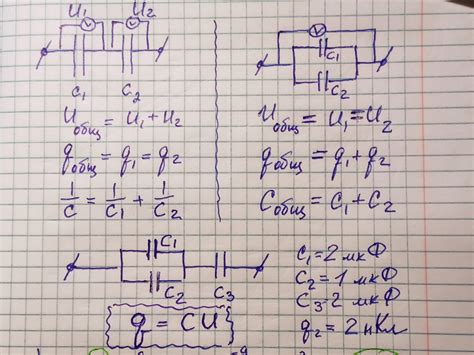 U₁ V V U₂
C₁ C₂
Uобщ = U₁ + U₂
qобщ = q₁ = q₂
1/C = 1/C₁ + 1/C₂
V
C₁
C₂
Uобщ = U₁ = U₂
qобщ = q₁ + q₂
Cобщ = C₁ + C₂
C₁
C₂ C₃
q = CU
C₁ = 2 мкФ
C₂ = 1 мкФ
C₃ = 2 мкФ
q₂ = 2 нКл